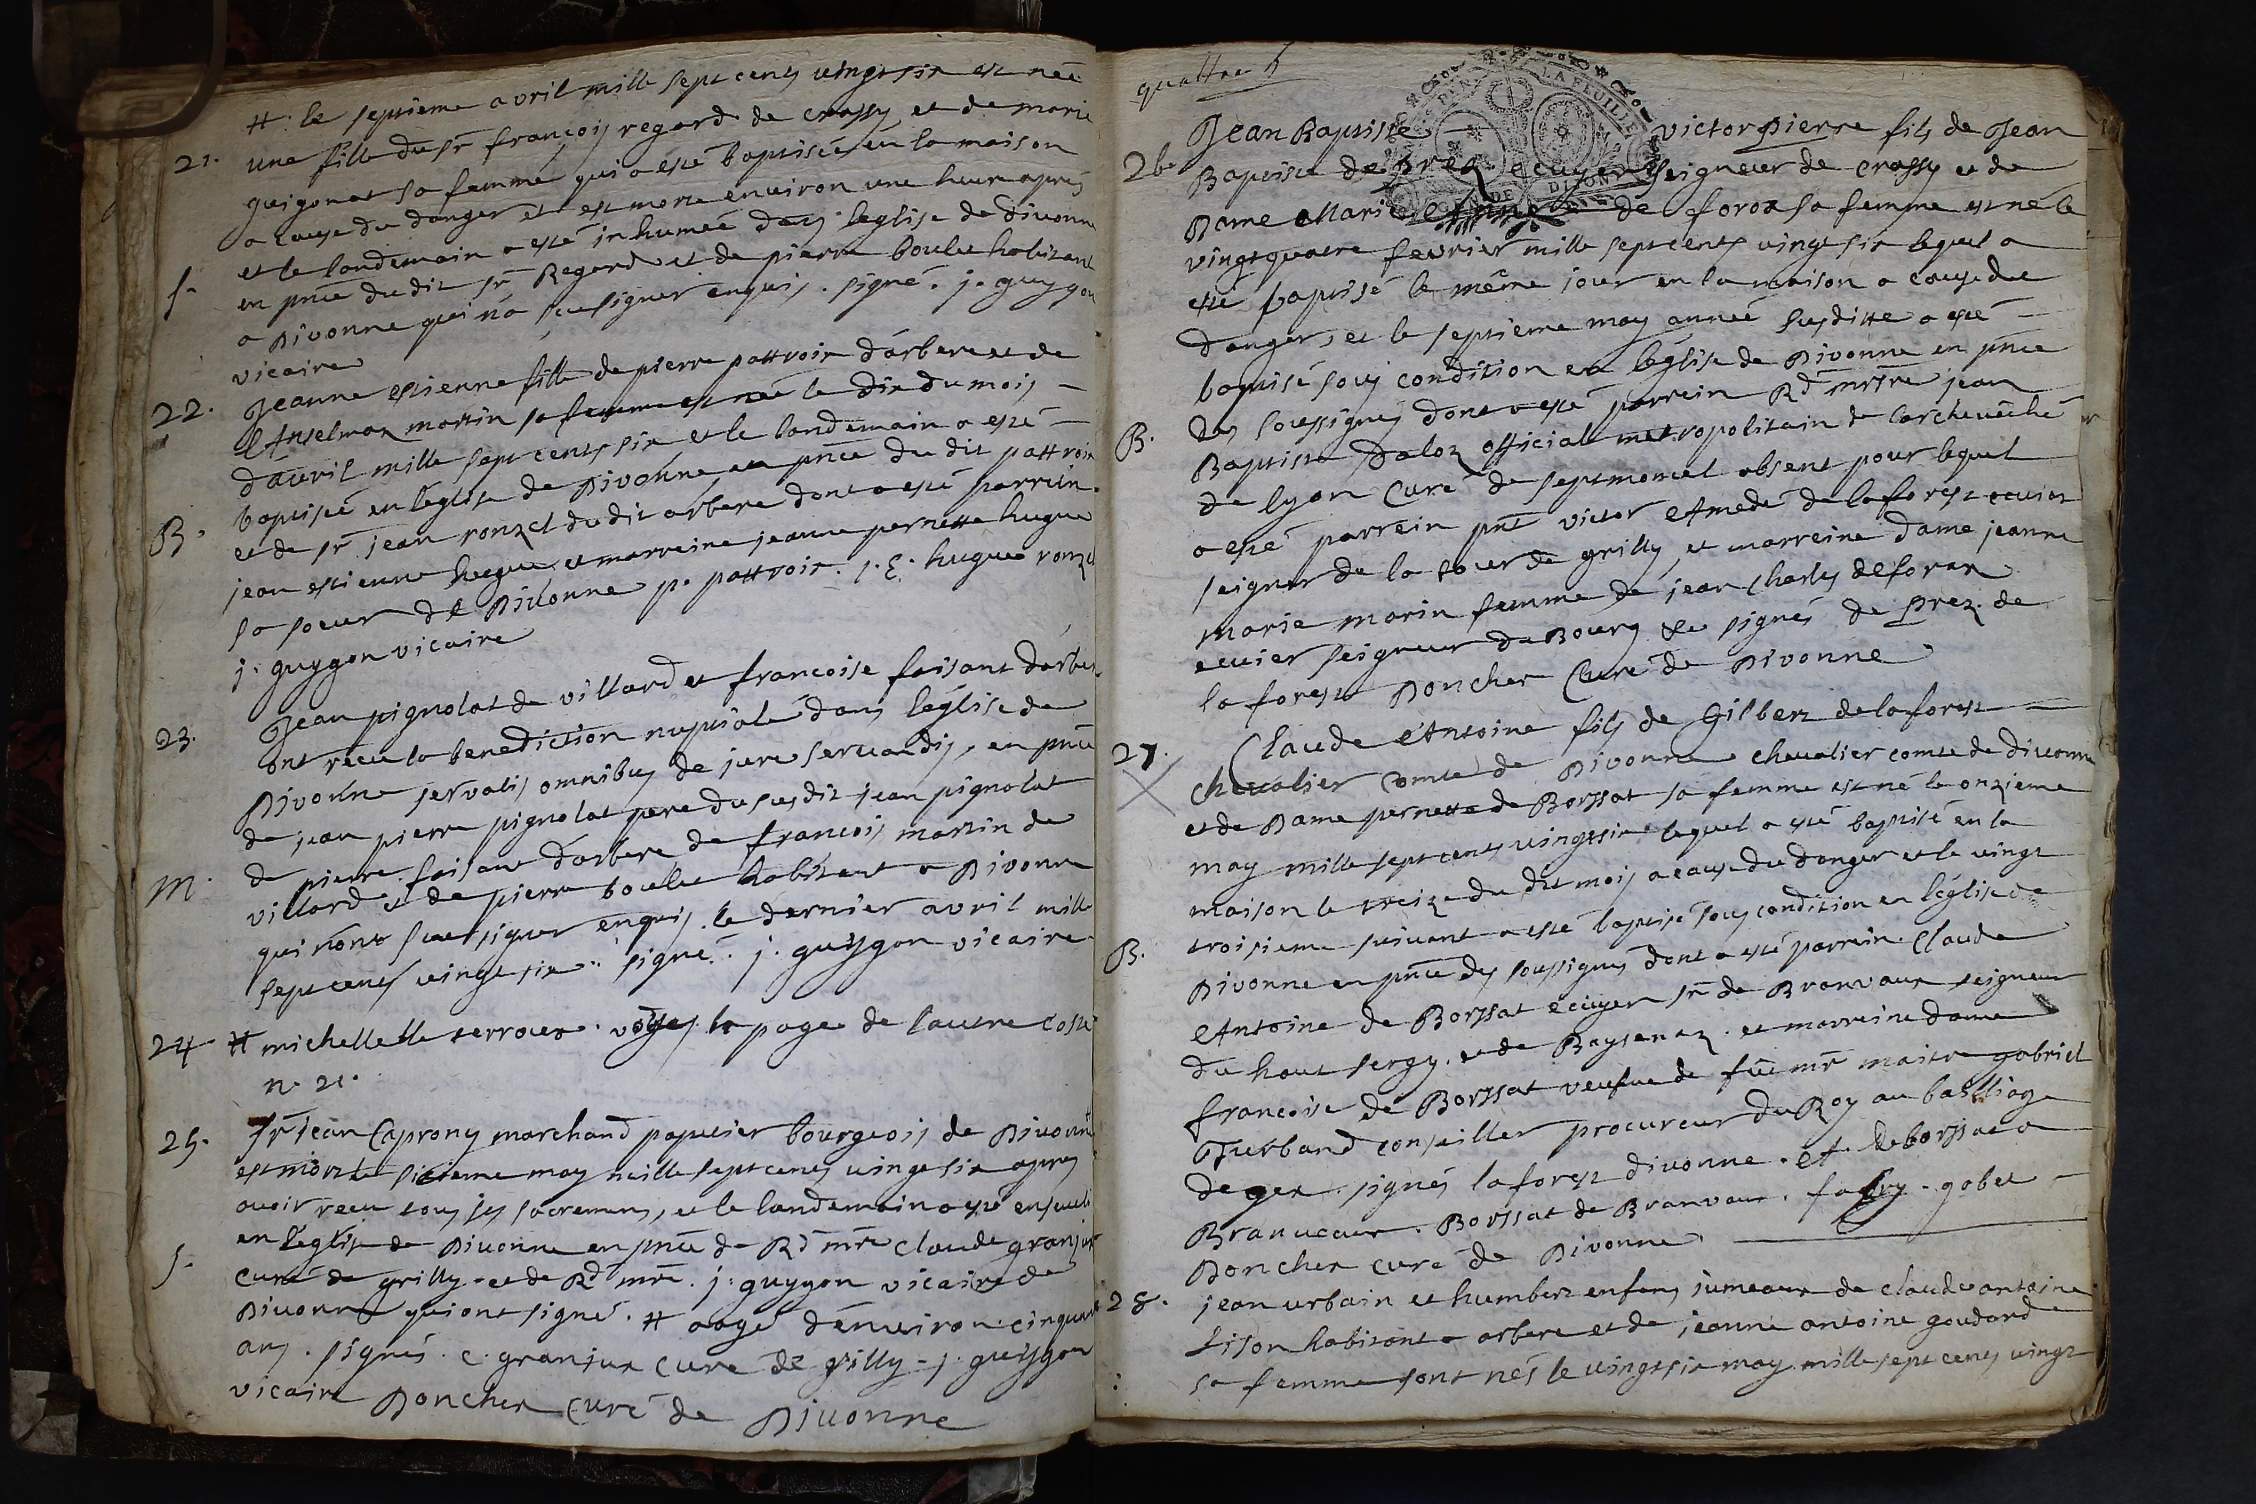 #. le septieme avril mille sept cents vingt six est née
21. une fille du sr françois regard de crassy et de marie
guigonat sa femme, qui a esté baptisée en la maison
a cause du danger et est morte environ une heure apres
et le landemain a esté inhumée dans leglise de divonne
S. en pnce du dit sr Regard et de pierre boulet habitant
a Divonne qui n'a sceu signer enquis. signé. j. guygon
vicaire
22. Jeanne estienne fille de pierre pattroix d'arbere et de
Anselmaz martin sa femme est née le dix du mois -
d'avril mille sept cents six et le landemain a esté -
baptisée en l'eglise de Divonne en pnce du dit pattroix
B. et de sr jean ronzel du dit arbere dont a esté parrein
jean estienne hugue et marreine jeanne pernette hugue
sa soeur de Divonne p. pattroix. j. E. hugue ronzel
j. guygon vicaire
23. Jean pignolat de villard et francoise faisant d'arbere
ont receu la benediction nuptiale dans l'église de
Divonne servatis omnibus de jure servandis, en pnce
de jean pierre pignolat pere du susdit jean pignolat
de pierre faisant d'arbere de francois martin de
M. villard et de pierre boulet habitant a Divonne
qui n'ont sceu signer enquis. le dernier avril mille
sept cents vingt six. signé. j. guygon vicaire
24 # michellette terroux. voyes la page de lautre costé
n. 21.
25. Sr Jean Caprony marchand papetier bourgeois de Divonne
est mort le sixieme may mille sept cents vingt six apres
avoir receu tous ses sacremens, et le landemain a esté enseveli
en l'eglise de Divonne en pnce de Rd mre Claude granjux
S. curé de grilly et de Rd mre. j. guygon vicaire de
Divonne qui ont signé. # aagé d'environ cinquante
ans. signés. c. granjux curé de grilly - j. guygon
vicaire Doncher curé de Divonne
quattre 5
Jean Baptiste - victor pierre fils de Jean
26. Baptiste de prez ecuyer Seigneur de crassy et de
Dame Marie de foras sa femme est né le
vingt quatre fevrier mille sept cents vingt six lequel a
esté baptisé le même jour en la maison a cause du
danger, et le septieme may année susditte a esté -
baptisé sous condition en l'église de Divonne en pnce
des soussignés dont a esté parrein Rd mre jean
B. Baptiste Daloz official metropolitain de larchevêché
de lyon Curé de septmoncel absent pour lequel
a esté parrein pnt victor Amedé de la forest ecuier
seignr de la tour de grilly, et marreine dame jeanne
marie marin femme de jean Charles de foras
ecuier seigneur du Bourg & signés de Prez. de
la forest Doncher Curé de Divonne
27. Claude Antoine fils de Gilbert de la forest -
chevalier comte de Divonne chevalier comte de divonne
et de Dame pernette de Borssat sa femme est né le onzieme
may mille sept cents vingt six lequel a esté baptisé en la
maison le treize du dit mois a cause du danger et le vingt
troisieme suivant a esté baptisé sous condition en l'église de
B. Divonne en pnce des soussignés dont a esté parrein Claude
Antoine de Borssat ecuyer sr de Branvaux seigneur
du haut sergy. et de Baysenaz. et marreine dame
francoise de Borssat veufve de fû mr maitre gabriel
Turband conseiller procureur du Roy au bailliage
de gex. signés la forest divonne. et de borssat a
Branveaux. Borssat de Branvaux. fabry. gobet -
Doncher curé de Divonne
28. jean urbain et humbert enfans jumeaux de claude antoine
tison habitant a arbere et de jeanne antoine goudard
sa femme sont nés le vingt six may mille sept cents vingt